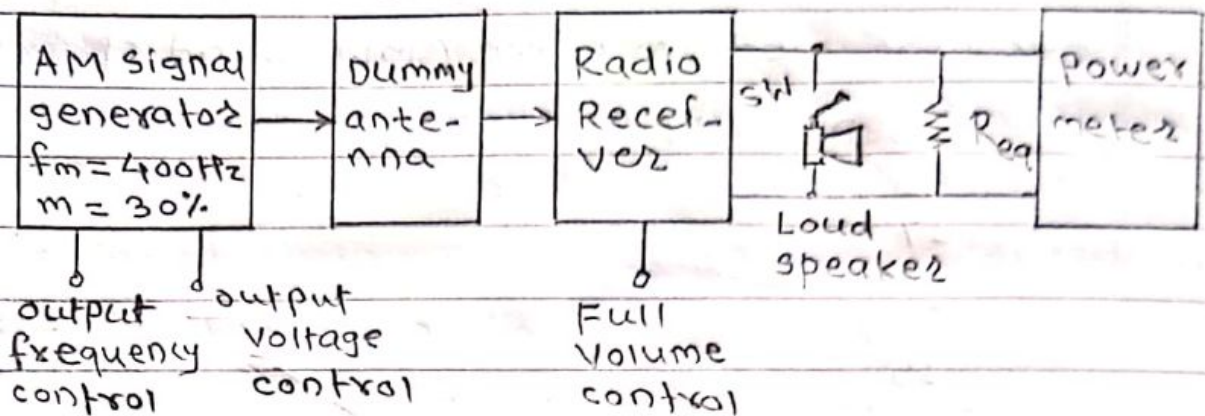 AM Signal
generator
fm = 400Hz
m = 30%
Dummy
ante-
nna
Radio
Recei-
ver
SW
Loud
speaker
Req
power
meter
output
frequency
control
output
voltage
control
Full
volume
control